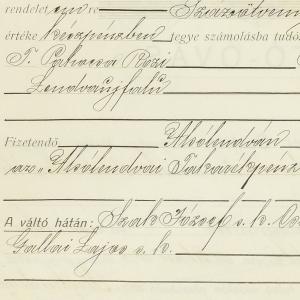 rendelet én re Százötven
értéke készpénzben jegye számolásba tudó
T. Pahocsa Rozi
Lendvaujfalu
Fizetendő Alsólendván
az „Alsólendvai Takarékpénz
A váltó hátán: Szak József s. k.
Gallai Lajos s. k.